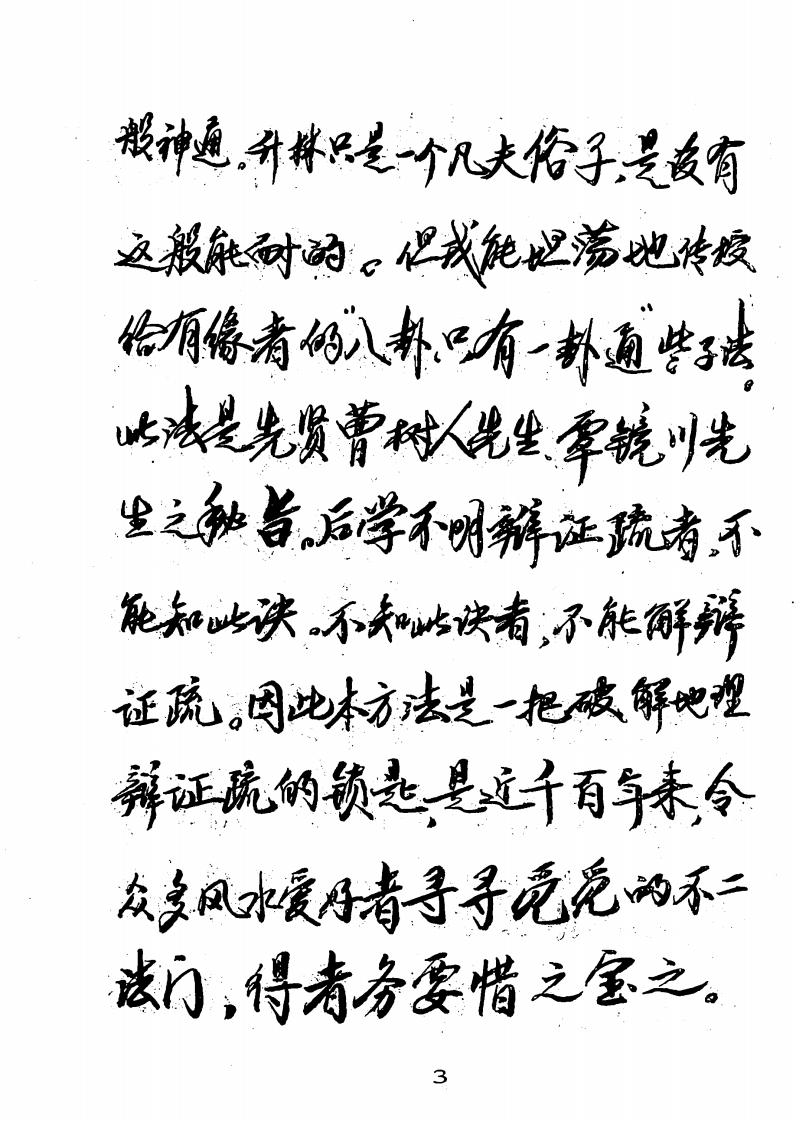 般神通。升林只是一个凡夫俗子,是没有
这般能耐的。但我能坦荡地传授
给有缘者的"八卦只有一卦通"些子法。
此法是先贤曹树人先生、覃镜川先
生之秘旨。后学不明辩证疏者,不
能知此诀。不知此诀者,不能解辩
证疏。因此本方法是一把破解地理
辩证疏的锁匙,是近千百年来,令
众多风水爱好者寻寻觅觅的不二
法门,得者务要惜之宝之。
3